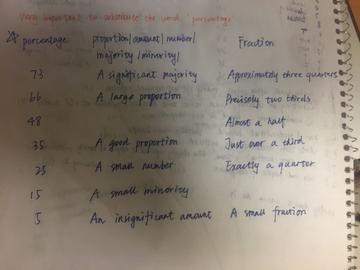 Very important to substitute the word percentage
percentage proportion/amount/number/ Fraction
majority/minority/
73 A significant majority Aproximately three quarters
66 A large proportion Precisely two thirds
48 Almost a half
35 A good proportion Just over a third
25 A small number Exactly a quarter
15 A small minority
5 An insignificant amount A small fraction